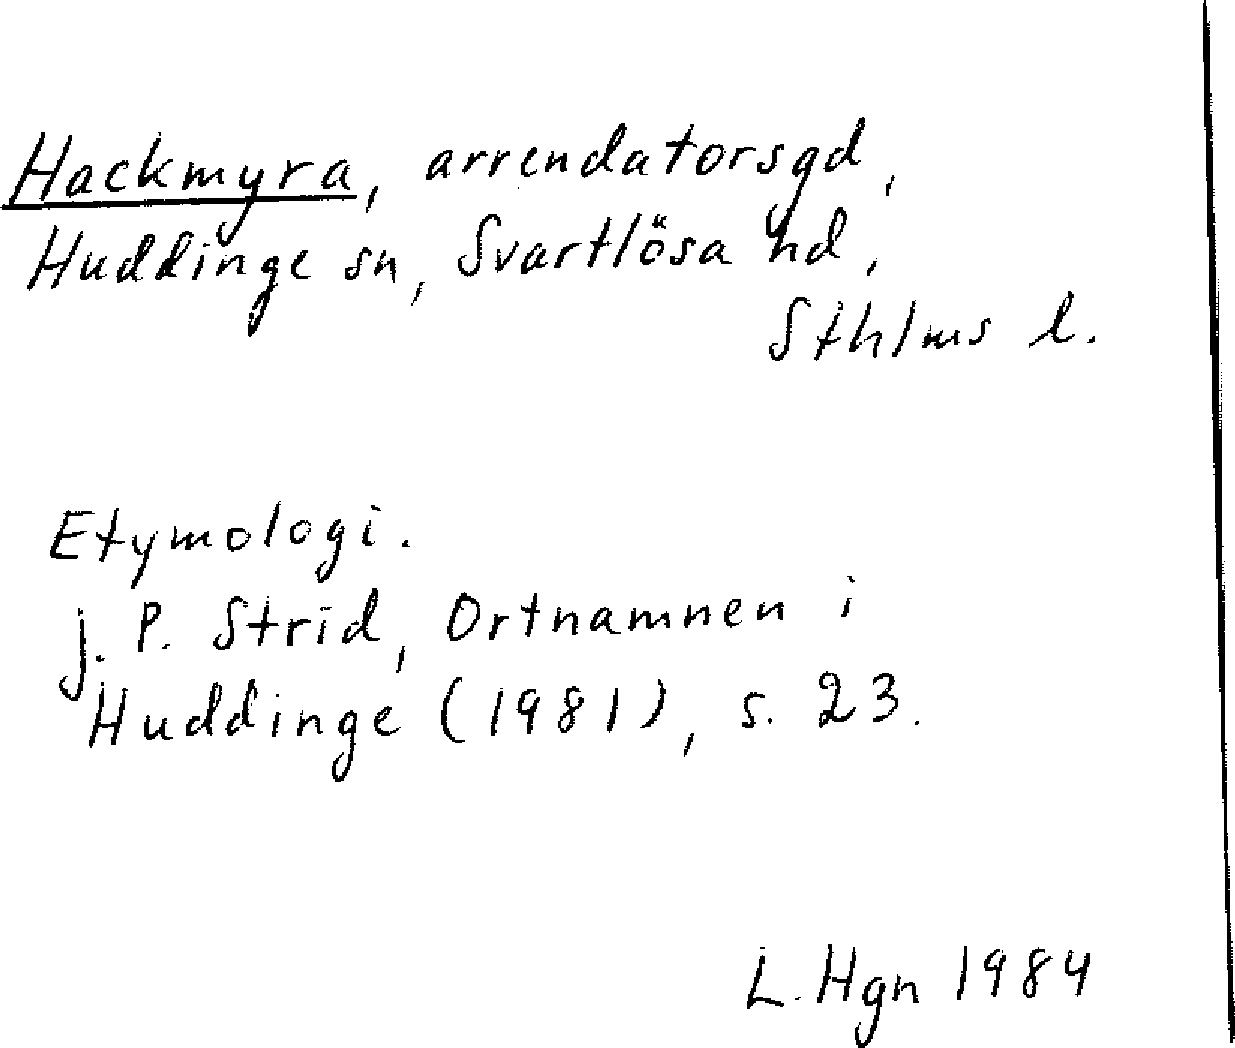 Hackmyra, arrendatorsgd,
Huddinge sn, Svartlösa hd,
Sthlms l.
Etymologi.
J. P. Strid, Ortnamnen i
Huddinge (1981), s. 23.
L. Hgn 1984